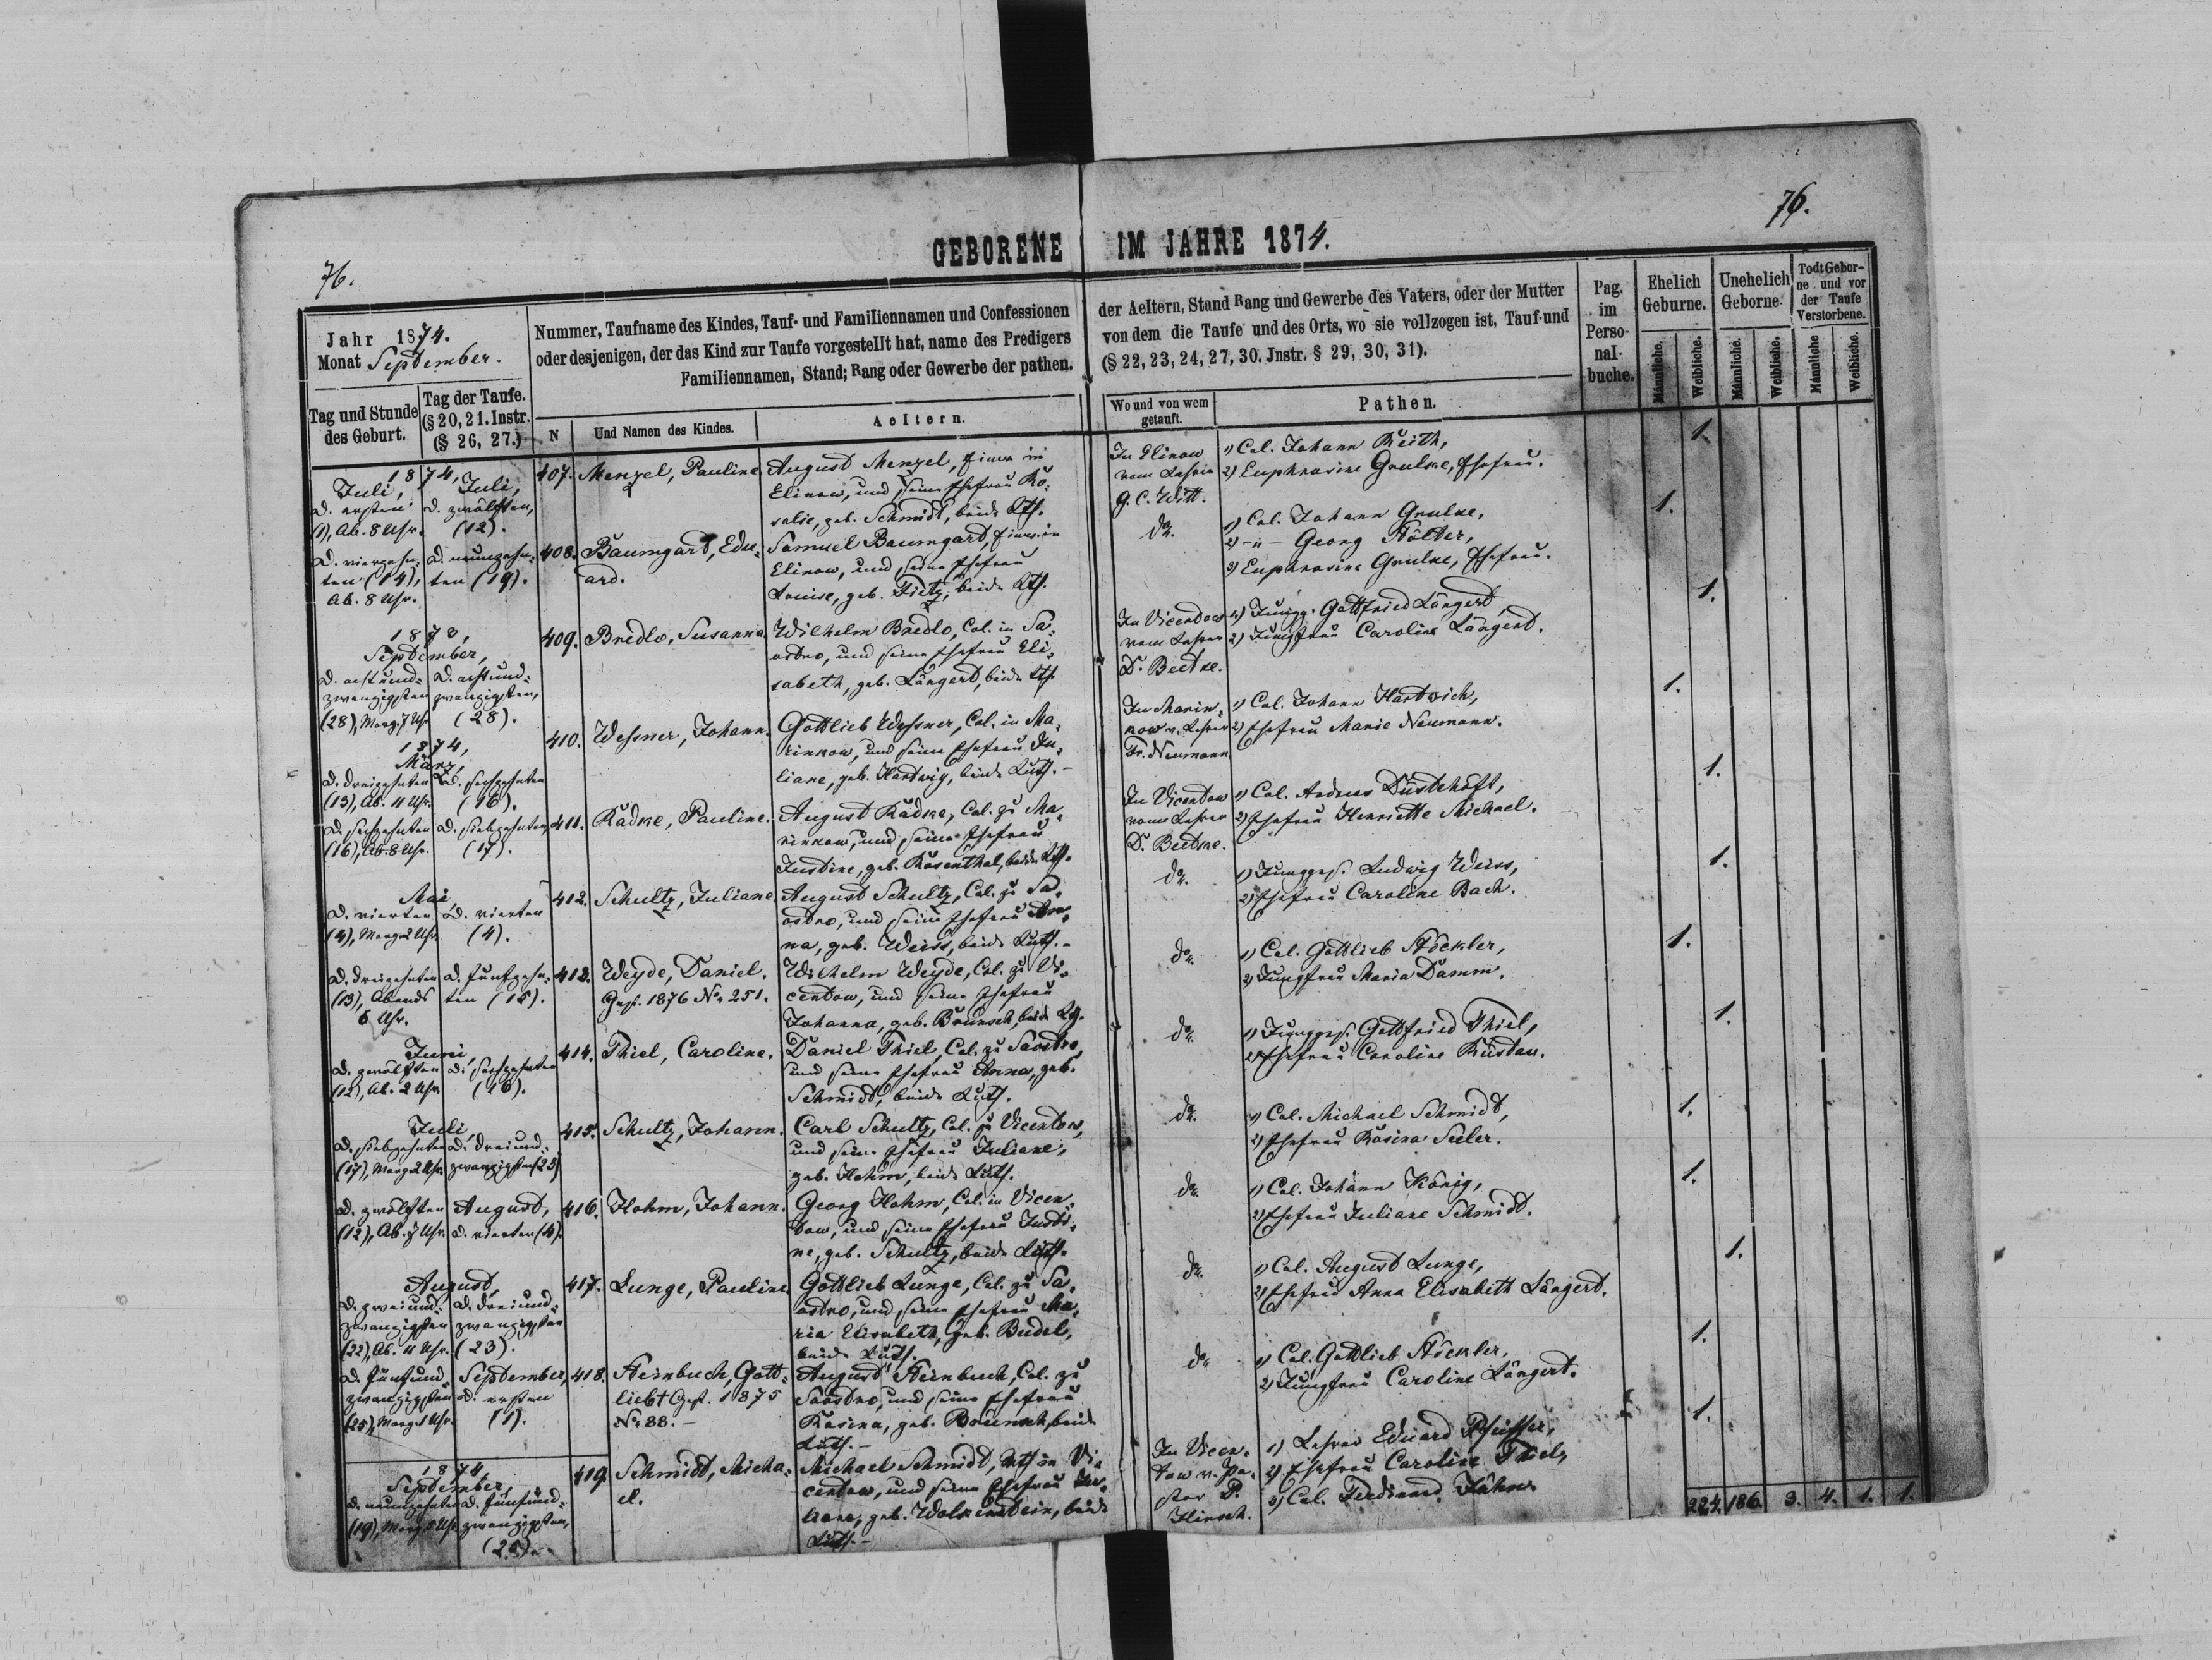 76.
76.
GEBORENE IM JAHRE 1874.
Jahr 1874.
Monat September.
Tag und Stunde
des Geburt.
Tag der Taufe.
(§ 20, 21. Instr.
(§ 26, 27.)
Nummer, Taufname des Kindes, Tauf- und Familiennamen und Confessionen
oder desjenigen, der das Kind zur Taufe vorgestellt hat, name des Predigers
Familiennamen, Stand; Rang oder Gewerbe der pathen.
N
Und Namen des Kindes.
Aeltern.
der Aeltern, Stand Rang und Gewerbe des Vaters, oder der Mutter
von dem die Taufe und des Orts, wo sie vollzogen ist, Tauf-und
(§ 22, 23, 24, 27, 30. Jnstr. § 29, 30, 31).
Wo und von wem
getauft.
Pathen.
Pag.
im
Perso-
nal-
buche.
Ehelich
Geburne.
Unehelich
Geborne.
Todt Gebor-
ne und vor
der Taufe
Verstorbene.
Männliche.
Weibliche.
Männliche.
Weibliche.
Männliche
Weibliche.
1874,
Juli,
d. ersten
(1), Ab. 8 Uhr.
Juli,
d. zwölften,
(12).
407.
Menzel, Pauline.
August Menzel, Einw. in
Elinow, und seine Ehefrau Ro-
salie, geb. Schmidt, beide Luth.
In Elinow
vom Lehrer
G. C. Witt.
1) Col. Johann Reith,
2) Euphrosine Grulke, Ehefrau.
1.
d. vierzehn-
ten (14),
Ab. 8 Uhr.
d. neunzehn-
ten (19).
408.
Baumgart, Edu-
ard.
Samuel Baumgart, Einw. in
Elinow, und seine Ehefrau
Louise, geb. Fietz, beide Luth.
do.
1) Col. Johann Grulke,
2) -"- Georg Hölter,
3) Euphrosine Grulke, Ehefrau.
1.
1873,
September,
d. achtund-
zwanzigsten
(28), Morg. 7 Uhr
d. achtund-
zwanzigsten,
(28).
409.
Bredlo, Susanna.
Wilhelm Bredlo, Col. in Sa-
ostro, und seine Ehefrau Eli-
sabeth, geb. Längert, beide Luth.
In Vicentow
vom Lehrer
D. Beetke.
1) Jungg. Gottfried Längert,
2) Jungfrau Caroline Längert.
1.
1874,
März,
d. dreizehnten
(13), Ab. 11 Uhr.
d. sechzehnten
(16).
410.
Wessner, Johann.
Gottlieb Wessner, Col. in Ma-
rinkow, und seine Ehefrau Ju-
liane, geb. Hartwig, beide Luth.-
In Marin-
kow v. Lehrer
Fr. Neumann.
1) Col. Johann Hartwich,
2) Ehefrau Marie Neumann.
1.
d. sechzehnten
(16), Ab. 8 Uhr.
d. siebzehnten
(17).
411.
Radke, Pauline.
August Radke, Col. zu Ma-
rinkow, und seine Ehefrau
Justine, geb. Rosenthal, beide Luth.
In Vicentow
vom Lehrer
D. Beetke.
1) Col. Andreas Düsterhöft,
2) Ehefrau Henriette Michael.
1.
Mai,
d. vierten
(4), Morg. 2 Uhr
d. vierten
(4).
412.
Schultz, Juliane.
August Schultz, Col. zu Sa-
ostro, und seine Ehefrau An-
na, geb. Weiss, beide Luth.-
do.
1) Jungges. Ludwig Weiss,
2) Ehefrau Caroline Bach.
1.
d. dreizehnten
(13), Abends
6 Uhr.
d. fünfzehn-
ten (15).
413.
Weyde, Daniel.
Gest. 1876 No 251.
Wilhelm Weyde, Col. zu Vi-
centow, und seine Ehefrau
Johanna, geb. Braunsch, beide Luth.
do.
1) Col. Gottlieb Stöckler,
2) Jungfrau Maria Damm.
1.
Juni,
d. zwölften
(12), Ab. 2 Uhr
d. sechzehnten
(16).
414.
Thiel, Caroline.
Daniel Thiel, Col. zu Saostro,
und seine Ehefrau Anna, geb.
Schmidt, beide Luth.
do.
1) Jungges. Gottfried Thiel,
2) Ehefrau Caroline Rüstau.
1.
Juli,
d. siebzehnten
(17), Morg. 2 Uhr.
d. dreiund-
zwanzigsten (23)
415.
Schultz, Johann.
Carl Schultz, Col. zu Vicentow,
und seine Ehefrau Juliane,
geb. Hohm, beide Luth.
do.
1) Col. Michael Schmidt,
2) Ehefrau Rosina Seeler.
1.
d. zwölften
(12), Ab. 7 Uhr.
August,
d. vierten (4).
416.
Hohm, Johann.
Georg Hohm, Col. in Vicen-
tow, und seine Ehefrau Justi-
ne, geb. Schultz, beide Luth.
do.
1) Col. Johann König,
2) Ehefrau Juliane Schmidt.
1.
August,
d. zweiund-
zwanzigsten
(22), Ab. 11 Uhr.
d. dreiund-
zwanzigsten
(23).
417.
Lunge, Pauline.
Gottlieb Lunge, Col. zu Sa-
ostro, und seine Ehefrau Ma-
ria Elisabeth, geb. Beidel,
beide Luth.
do.
1) Col. August Lunge,
2) Ehefrau Anna Elisabeth Längert.
1.
d. fünfund-
zwanzigsten
(25), Morg. 1 Uhr.
September,
d. ersten
(1).
418.
Steinbuch, Gott-
lieb + Gest. 1875
No 88.-
August Steinbuch, Col. zu
Saostro, und seine Ehefrau
Rosina, geb. Braunsch, beide
Luth.-
do.
1) Col. Gottlieb Stöckler,
2) Jungfrau Caroline Längert.
1.
1874,
September,
d. neunzehnten
(19), Morg. 8 Uhr
d. fünfund-
zwanzigsten,
(25).
419.
Schmidt, Micha-
el.
Michael Schmidt, in Vi-
centow, und seine Ehefrau Ju-
liane, geb. Wolkenstein, beide
Luth.-
In Vicen-
tow v. Pa-
stor P.
Hirsch.
1) Lehrer Eduard Pfeiffer,
2) Ehefrau Caroline Thiel,
3) Col. Ferdinand Jähne.
1.
224. 186. 3. 4. 1. 1.